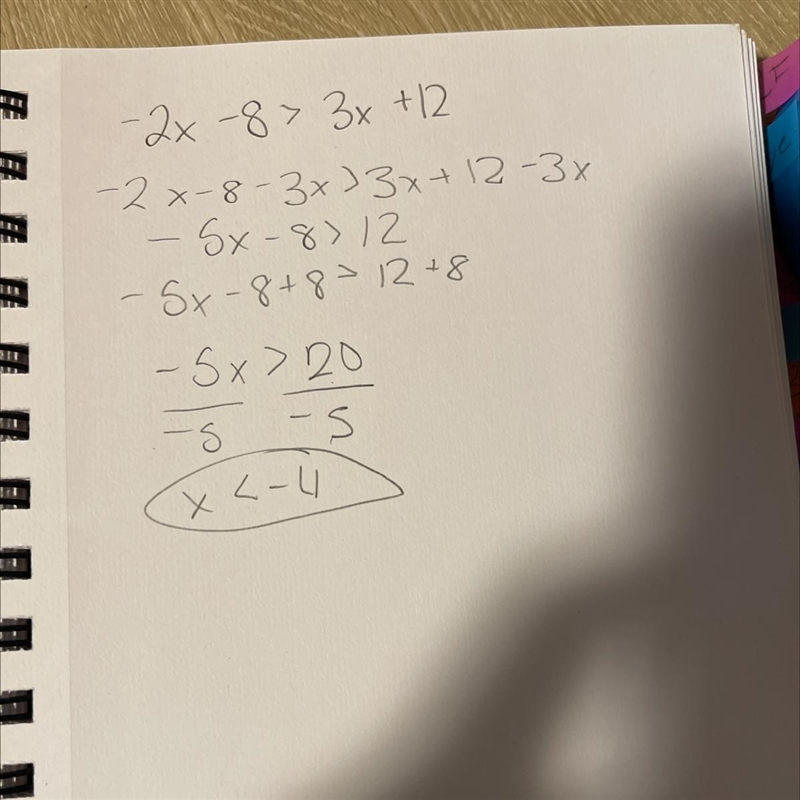 -2x -8 > 3x +12
-2x-8-3x>3x+12-3x
-5x-8>12
-5x-8+8>12+8
-5x > 20
-5 -5
x < -4